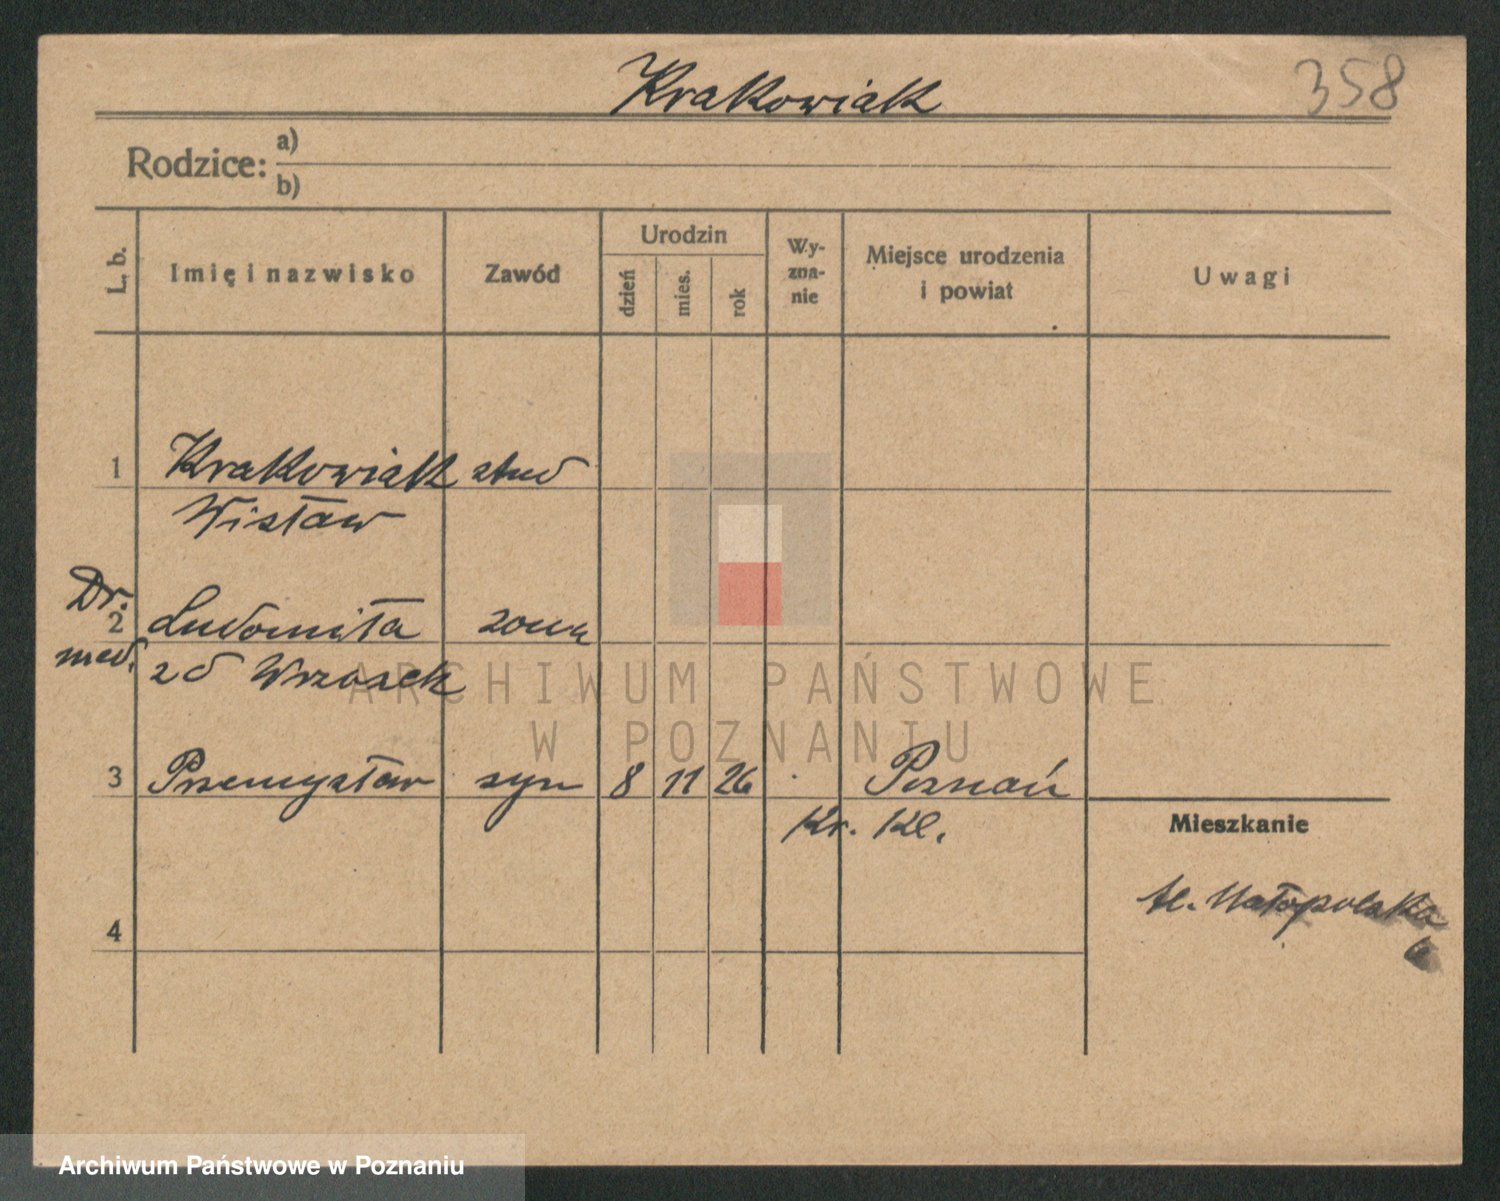 Krakowiak 358
Rodzice: a)
b)
L. b. Imię i nazwisko Zawód Urodzin dzień mies. rok Wy-zna-nie Miejsce urodzenia i powiat Uwagi
1 Krakowiak stud
Wisław
Dr.
2 Ludomiła żona
med. z d Wrzosek
ARCHIWUM PAŃSTWOWE
W POZNANIU
3 Przemysław syn 8 11 26 Poznań
Kr. Kl. Mieszkanie
Małopolska
4 6
Archiwum Państwowe w Poznaniu